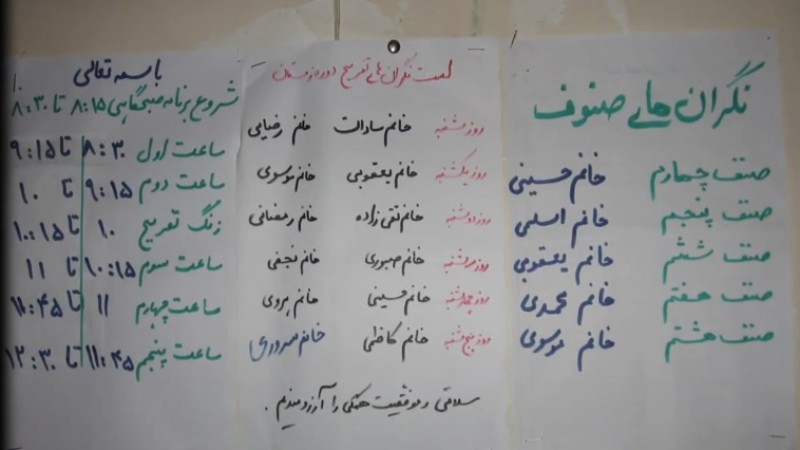 نگران های صنوف
صنف چهارم خانم حسینی
صنف پنجم خانم اسلمی
صنف ششم خانم یعقوبی
صنف هفتم خانم محمدی
صنف هشتم خانم موسوی
لست نگران های تفریح دوره زمستان
روز شنبه خانم سادات خانم رضایی
روز یکشنبه خانم یعقوبی خانم موسوی
روز دوشنبه خانم تقی زاده خانم رمضانی
روز سه شنبه خانم صبوری خانم نجفی
روز چهارشنبه خانم حسینی خانم هروی
روز پنج شنبه خانم کاظمی خانم
سلامتی و موفقیت همگی را آرزومندیم.
باسمه تعالی
شروع برنامه صبحگاهی ۸:۱۵ تا ۸:۳۰
ساعت اول ۸:۳۰ تا ۹:۱۵
ساعت دوم ۹:۱۵ تا ۱۰
زنگ تفریح ۱۰ تا ۱۰:۱۵
ساعت سوم ۱۰:۱۵ تا ۱۱
ساعت چهارم ۱۱ تا ۱۱:۴۵
ساعت پنجم ۱۱:۴۵ تا ۱۲:۳۰